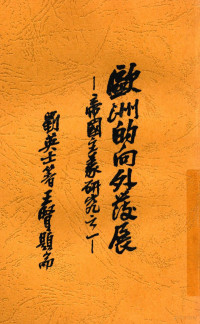 歐洲的向外發展
—帝國主義研究之一—
劉英士著 王賢題耑